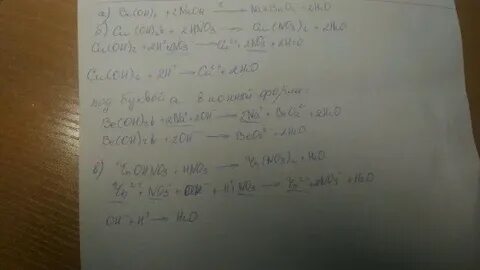 а) Be(OH)₂ + 2NaOH → Na₂BeO₂ + 2H₂O
б) Cu(OH)₂ + 2HNO₃ → Cu(NO₃)₂ + 2H₂O
Cu(OH)₂ + 2H⁺ + 2NO₃⁻ → Cu²⁺ + 2NO₃⁻ + 2H₂O
Cu(OH)₂ + 2H⁺ → Cu²⁺ + 2H₂O
под буквой а в ионной форме:
Be(OH)₂↓ + 2Na⁺ + 2OH⁻ → 2Na⁺ + BeO₂²⁻ + 2H₂O
Be(OH)₂↓ + 2OH⁻ → BeO₂²⁻ + 2H₂O
в) OHNO₃ + HNO₃ → (NO₃)₂ + H₂O
+ NO₃⁻ + OH⁻ + H⁺ + NO₃⁻ → + 2NO₃⁻ + H₂O
OH⁻ + H⁺ → H₂O